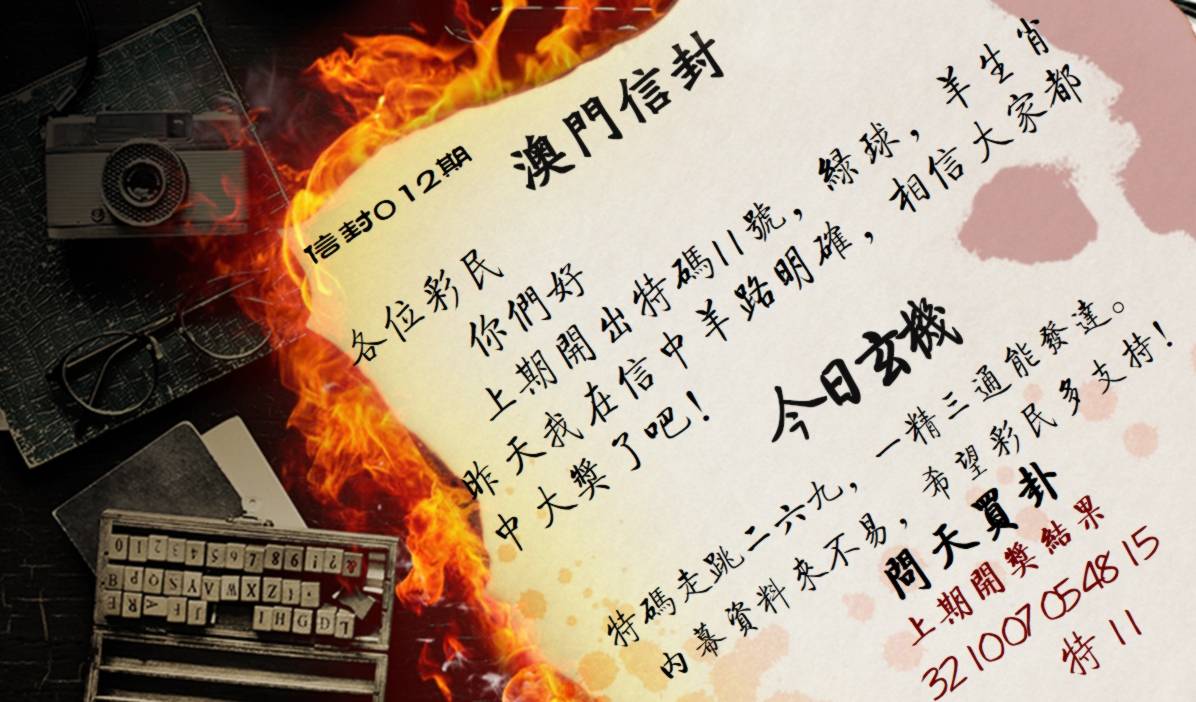 澳門信封
信封012期
各位彩民
你們好
上期開出特碼11號，綠球，羊生肖
昨天我在信中羊路明確，相信大家都
中大獎了吧！
今日玄機
特碼走跳二六九，一精三通能發達。
內幕資料來不易，希望彩民多支持！
問天買卦
上期開獎結果
321007054815
特11
&?!9876543210
.!ZXWVAYSQPOB
LGDGIHI JFFARE